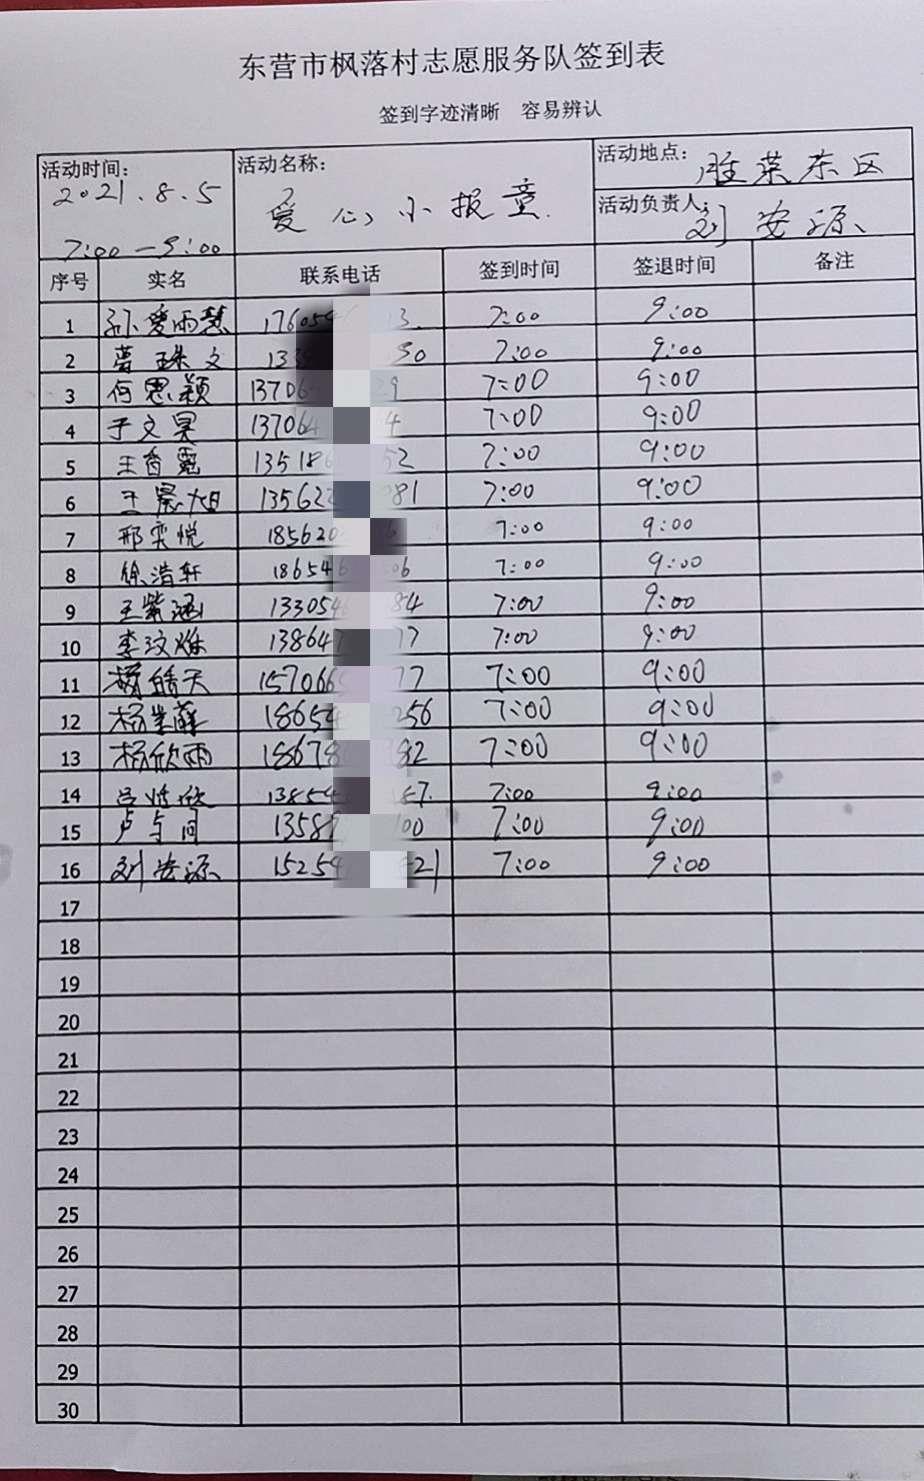 东营市枫落村志愿服务队签到表
签到字迹清晰 容易辨认
活动时间: 2021.8.5 7:00—9:00
活动名称: 爱心小报童
活动地点: 胜采东区
活动负责人: 刘安源
序号 实名 联系电话 签到时间 签退时间 备注
1 孙爱雨慧 176054 3. 7:00 9:00
2 133 30 7:00 9:00
3 何思颖 13706 29 7:00 9:00
4 于文昊 137064 4 7:00 9:00
5 135186 52 7:00 9:00
6 王晨旭 135622 081 7:00 9:00
7 邢奕悦 185620 7:00 9:00
8 徐浩轩 18654 06 7:00 9:00
9 王紫涵 133054 84 7:00 9:00
10 李汶 138647 77 7:00 9:00
11 杨皓天 157066 77 7:00 9:00
12 杨 18654 256 7:00 9:00
13 杨欣雨 18678 382 7:00 9:00
14 13854 57. 7:00 9:00
15 卢与同 1358 00 7:00 9:00
16 刘安源 15254 21 7:00 9:00
17
18
19
20
21
22
23
24
25
26
27
28
29
30